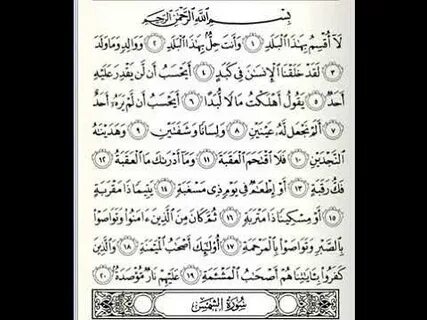 بِسْمِ اللَّهِ الرَّحْمَٰنِ الرَّحِيمِ
لَا أُقْسِمُ بِهَٰذَا الْبَلَدِ ١ وَأَنتَ حِلٌّ بِهَٰذَا الْبَلَدِ ٢ وَوَالِدٍ وَمَا وَلَدَ
٣ لَقَدْ خَلَقْنَا الْإِنسَانَ فِي كَبَدٍ ٤ أَيَحْسَبُ أَن لَّن يَقْدِرَ عَلَيْهِ
أَحَدٌ ٥ يَقُولُ أَهْلَكْتُ مَالًا لُّبَدًا ٦ أَيَحْسَبُ أَن لَّمْ يَرَهُ أَحَدٌ
٧ أَلَمْ نَجْعَل لَّهُ عَيْنَيْنِ ٨ وَلِسَانًا وَشَفَتَيْنِ ٩ وَهَدَيْنَاهُ
النَّجْدَيْنِ ١٠ فَلَا اقْتَحَمَ الْعَقَبَةَ ١١ وَمَا أَدْرَاكَ مَا الْعَقَبَةُ ١٢
فَكُّ رَقَبَةٍ ١٣ أَوْ إِطْعَامٌ فِي يَوْمٍ ذِي مَسْغَبَةٍ ١٤ يَتِيمًا ذَا مَقْرَبَةٍ
١٥ أَوْ مِسْكِينًا ذَا مَتْرَبَةٍ ١٦ ثُمَّ كَانَ مِنَ الَّذِينَ آمَنُوا وَتَوَاصَوْا
بِالصَّبْرِ وَتَوَاصَوْا بِالْمَرْحَمَةِ ١٧ أُولَٰئِكَ أَصْحَابُ الْمَيْمَنَةِ ١٨ وَالَّذِينَ
كَفَرُوا بِآيَاتِنَا هُمْ أَصْحَابُ الْمَشْأَمَةِ ١٩ عَلَيْهِمْ نَارٌ مُّؤْصَدَةٌ ٢٠
سُورَةُ الشَّمْسِ